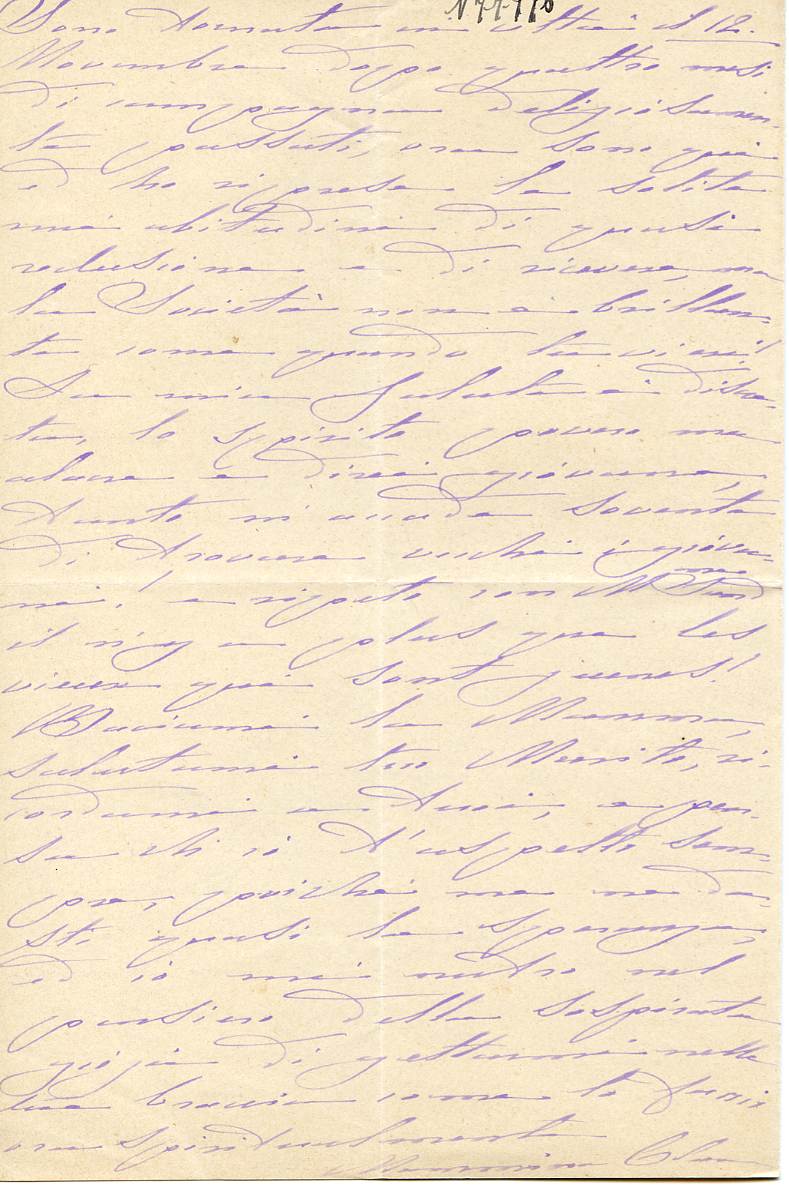 N 7771 b
Sono tornata in città il 12.
Novembre dopo quattro mesi
di campagna deligiosamen-
te passati, ora sono qui
e ho ripresa la solita
mia abitudine di quasi
reclusione e di ricevere, ma
la Società non è brillan-
te come quando tu vieni!
La mia Salute è discre-
ta, lo spirito povero ma
alacre e direi giovane,
tanto mi accade sovente
di trovare vecchi i giova-
ni! e ripeto con Mme
il n'y a plus que les
vieux qui sont jeunes!
Baciami la Mamma,
salutami tuo Marito, ri-
cordami a tuoi, e pen-
sa ch'io t'aspetto sem-
pre, poichè me ne da-
sti quasi la speranza,
ed io mi nutro nel
pensiero della sospirata
gioja di gettarmi nelle
tue braccia come lo fanno
ora spiritualmente